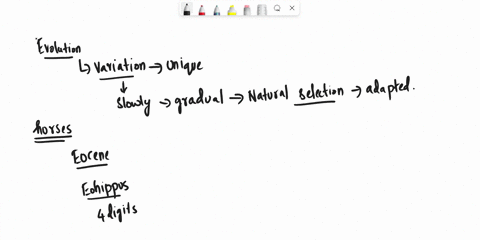 Evolution
↳ Variation → Unique
↓
Slowly → gradual → Natural Selection → adapted.
horses
Eocene
Eohippus
4 digits